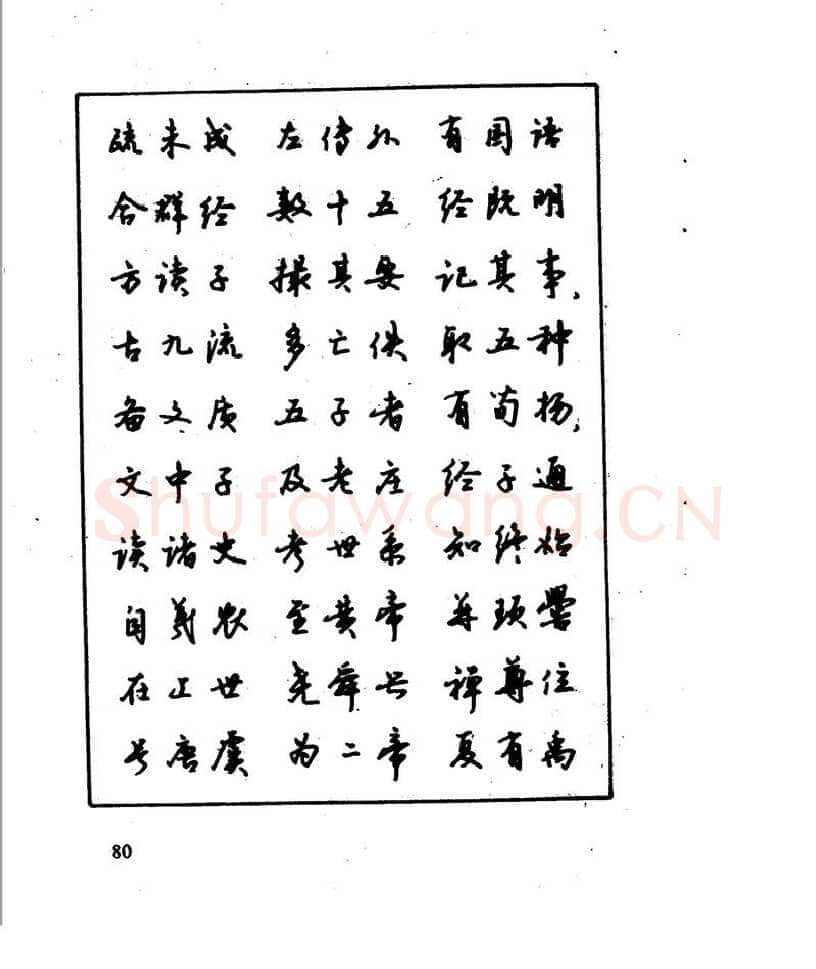 疏未成 左传外 有国语
合群经 数十五 经既明
方读子 撮其要 记其事，
古九流 多亡佚 取五种
备文质 五子者 有荀扬，
文中子 及老庄 经子通
读诸史 考世系 知终始
自羲农 至黄帝 并顼喾
在上世 尧舜兴 禅尊位
号唐虞 为二帝 夏有禹
80
Shufawang.CN